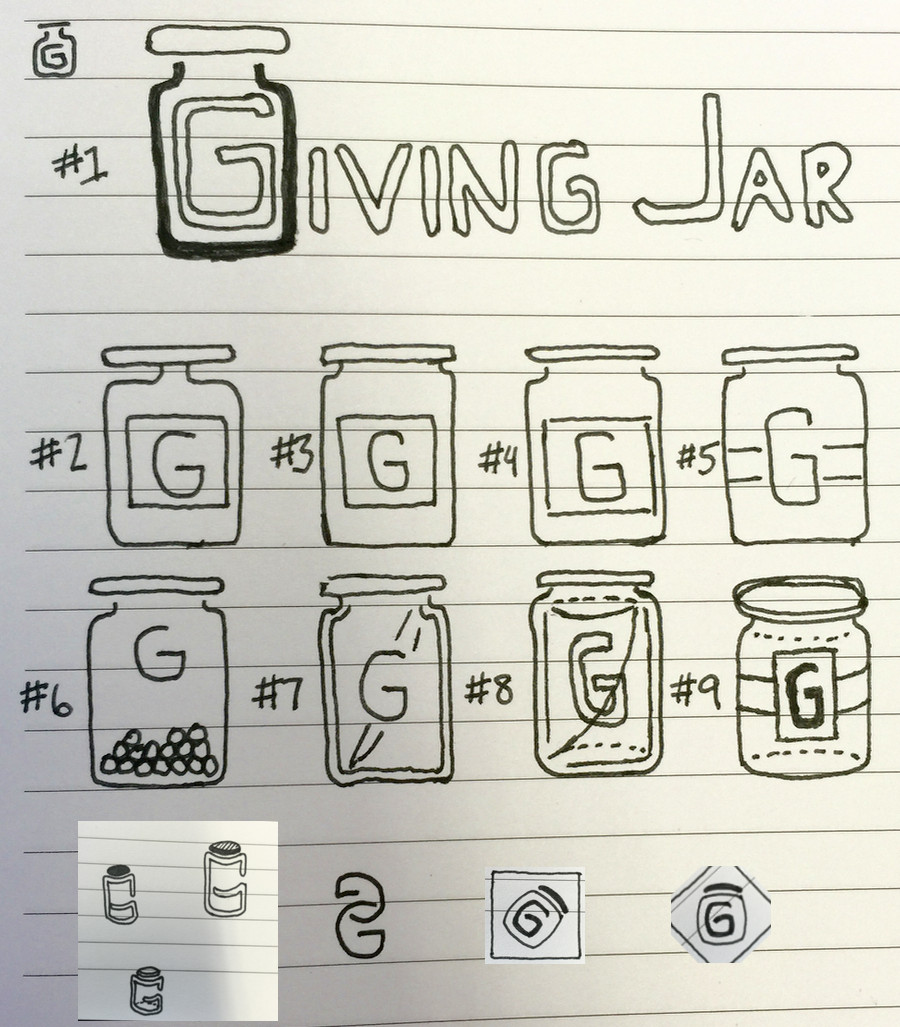 G
#1 GIVING JAR
#2 G #3 G #4 G #5 G
#6 G #7 G #8 G #9 G
G G